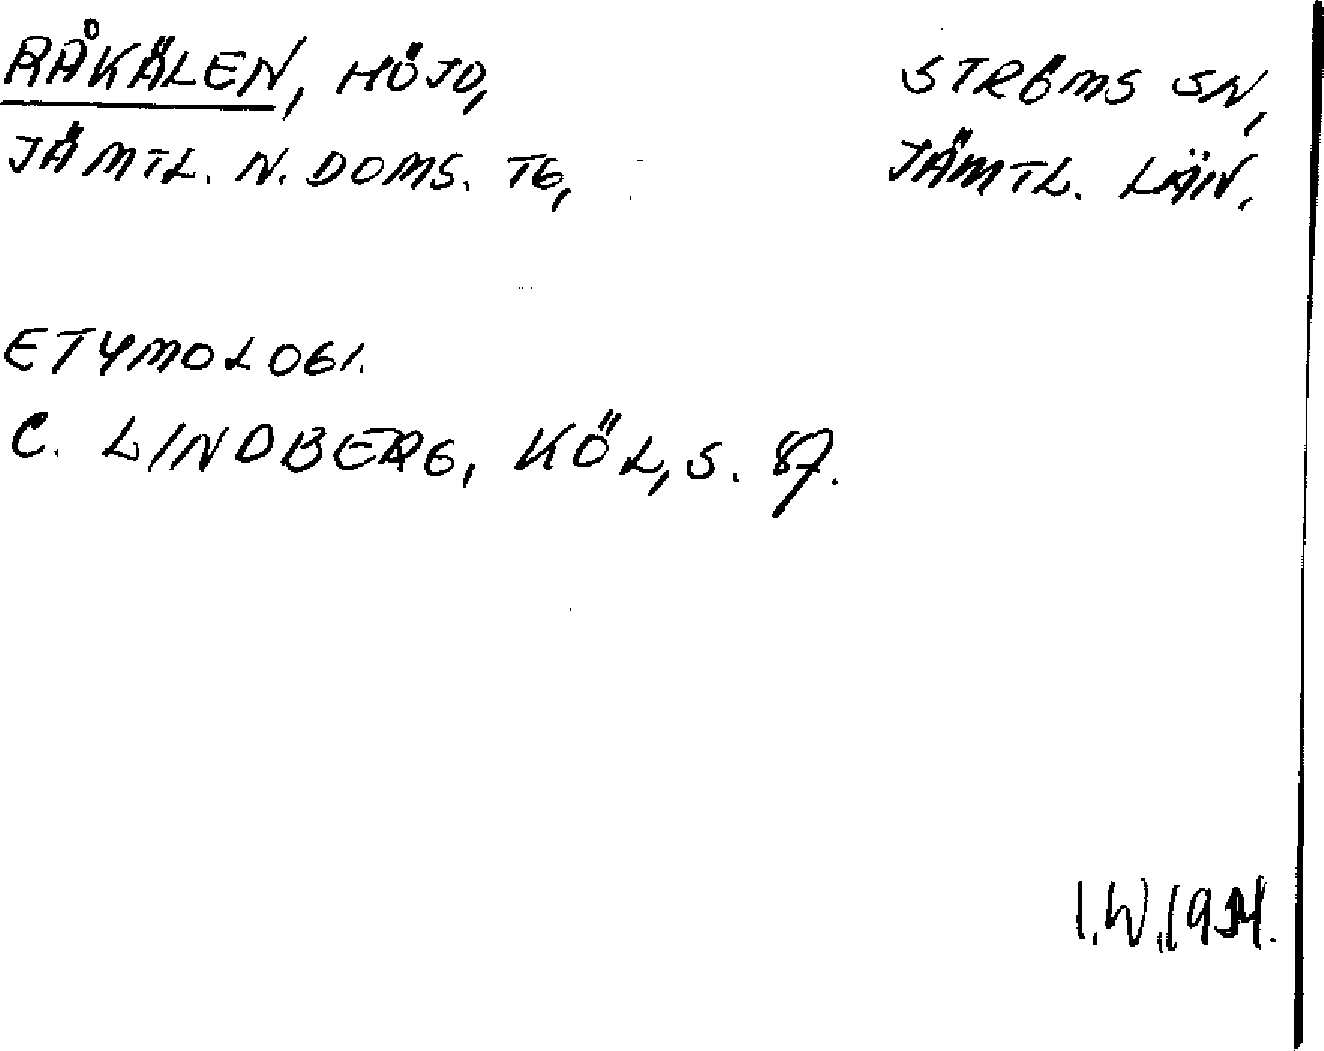 RÅKÄLEN, HÖJD, STRÖMS SN,
JÄMTL. N. DOMS. TG, JÄMTL. LÄN.
ETYMOLOGI.
C. LINDBERG, KÖL, S. 87.
I.W.